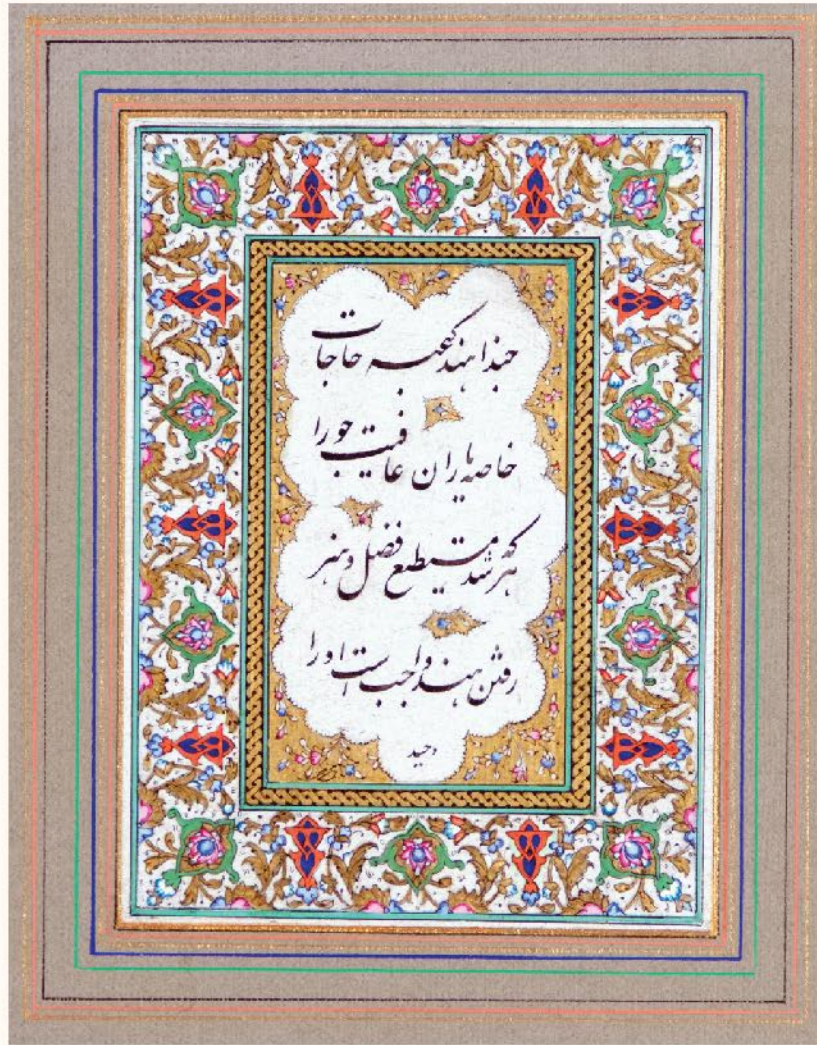 حبذا هند کعبه حاجات
خاصه یاران عافیت جو را
هر که شد مستطیع فضل و هنر
رفتن هند واجب است او را
وحید